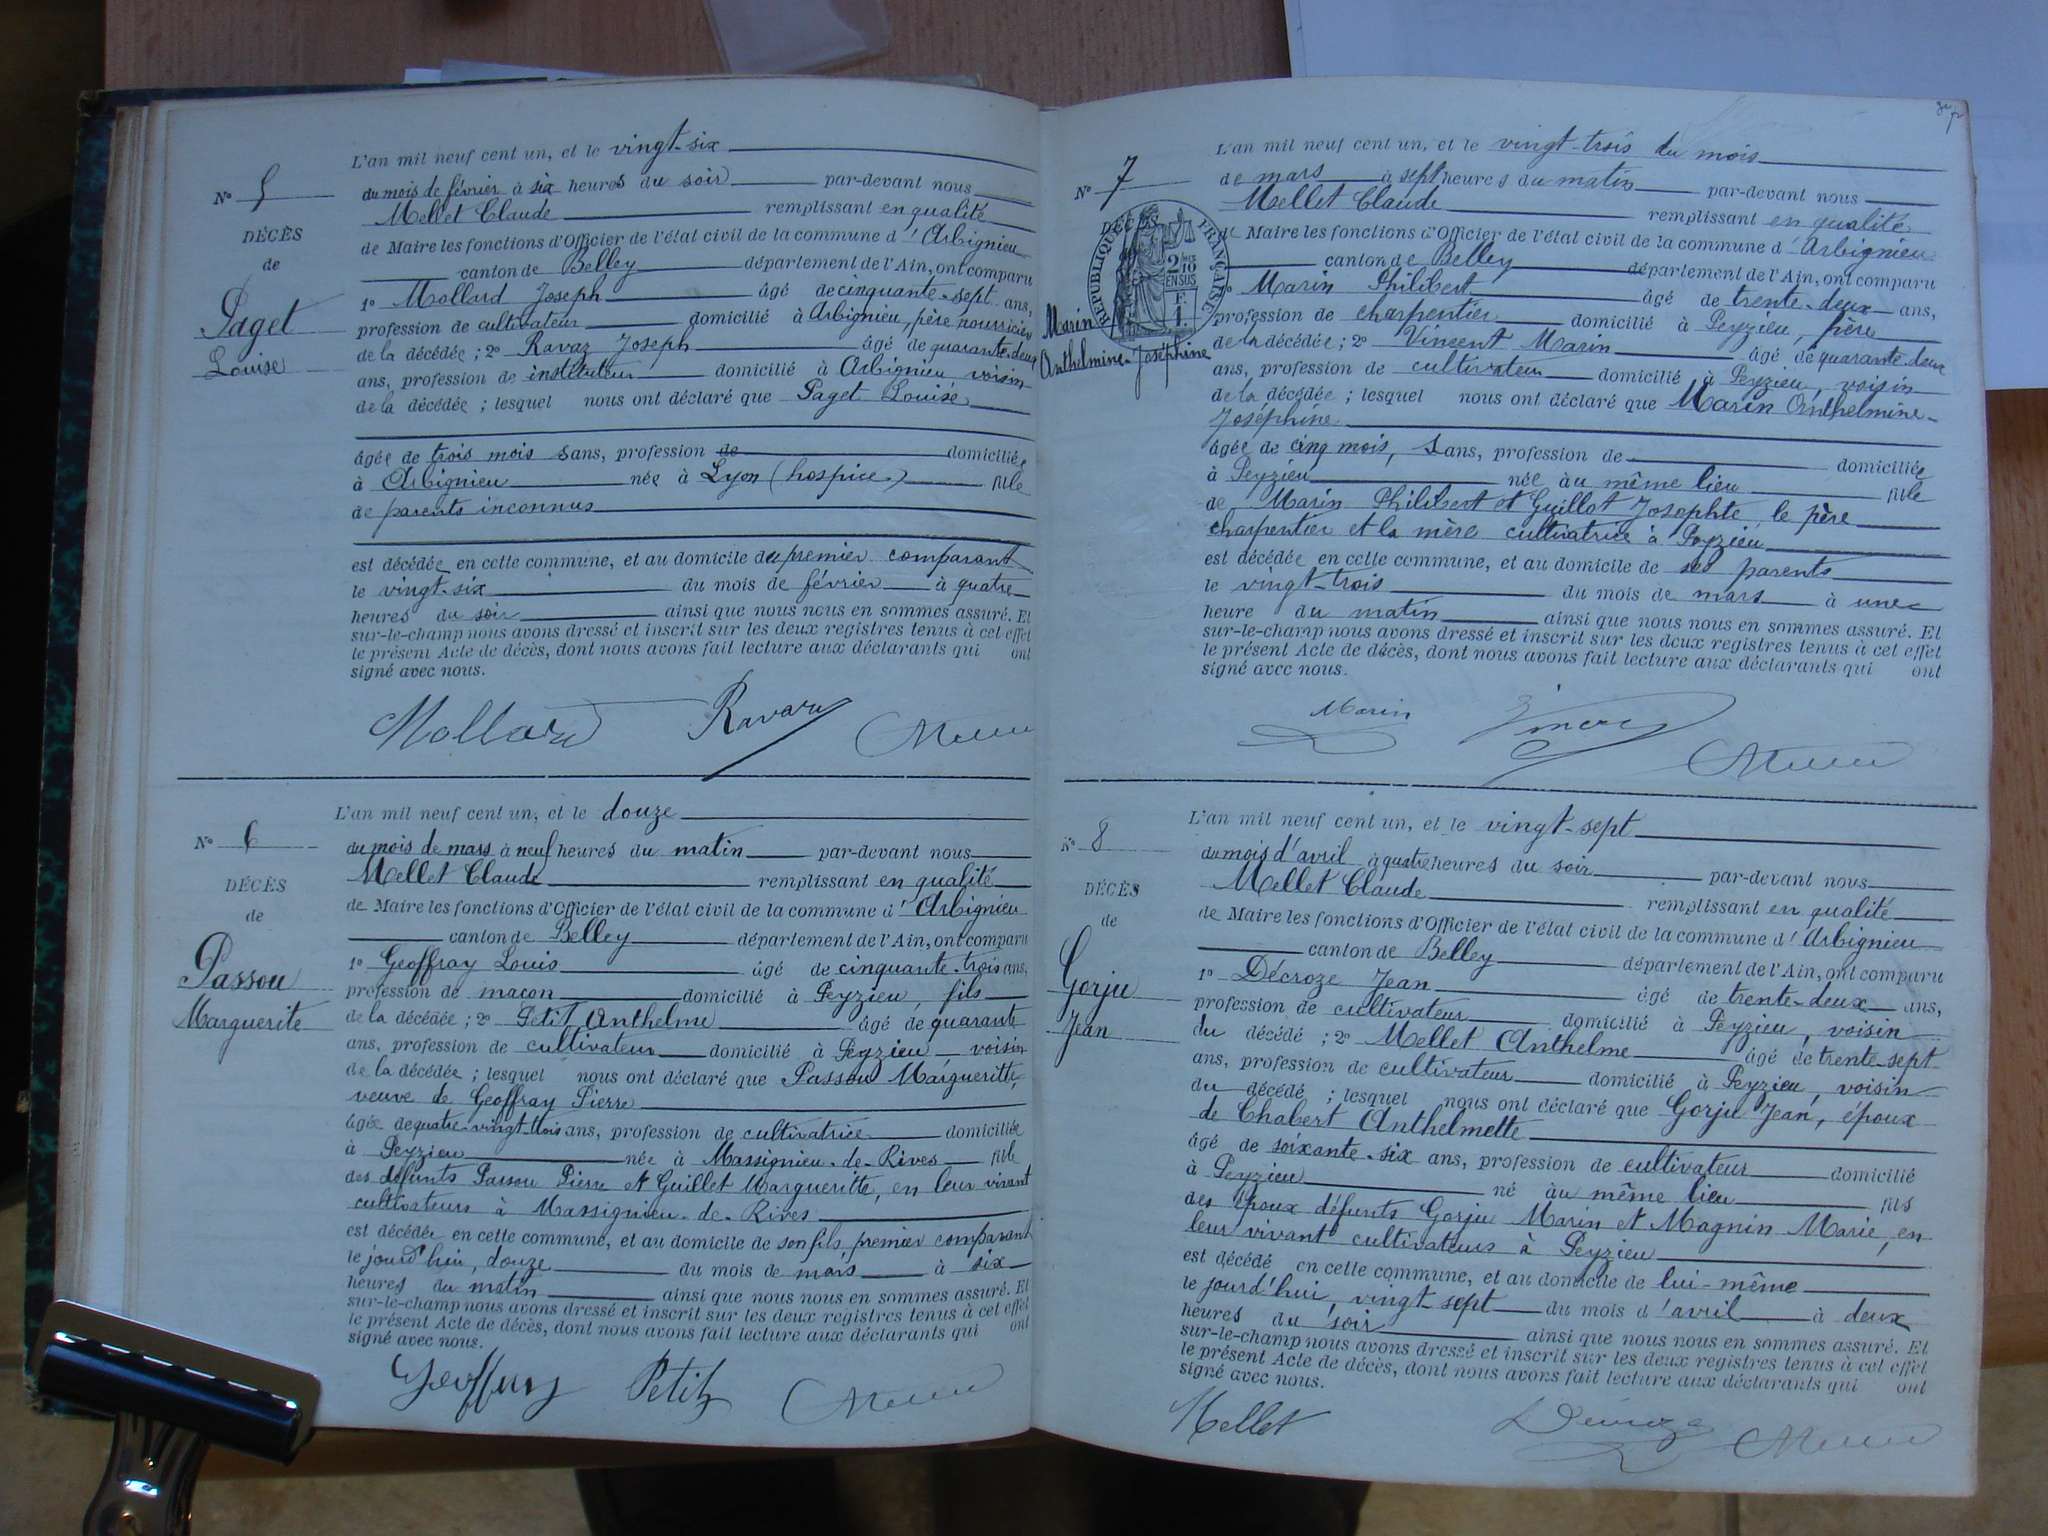 L'an mil neuf cent un, et le vingt-six
N° 5
du mois de février à six heures du soir par-devant nous
Mellet Claude remplissant en qualité
DÉCÈS
de Maire les fonctions d'Officier de l'état civil de la commune d'Arbignieu
de
canton de Belley département de l'Ain, ont comparu
Paget
1° Mollard Joseph âgé de cinquante-sept ans,
profession de cultivateur domicilié à Arbignieu, père nourricier
Louise
de la décédée ; 2° Ravaz Joseph âgé de quarante-deux
ans, profession de instituteur domicilié à Arbignieu voisin
de la décédée ; lesquel nous ont déclaré que Paget Louise
âgée de trois mois sans, profession de domiciliée
à Arbignieu née à Lyon (hospice) fille
de parents inconnus
est décédée en cette commune, et au domicile du premier comparant
le vingt-six du mois de février à quatre
heures du soir ainsi que nous nous en sommes assuré. Et
sur-le-champ nous avons dressé et inscrit sur les deux registres tenus à cet effet
le présent Acte de décès, dont nous avons fait lecture aux déclarants qui ont
signé avec nous.
Mollard Ravaz
L'an mil neuf cent un, et le douze
N° 6
du mois de mars à neuf heures du matin par-devant nous
Mellet Claude remplissant en qualité
DÉCÈS
de Maire les fonctions d'Officier de l'état civil de la commune d'Arbignieu
de
canton de Belley département de l'Ain, ont comparu
Passou
1° Geoffray Louis âgé de cinquante-trois ans,
profession de maçon domicilié à Peyzieu, fils
Marguerite
de la décédée ; 2° Petit Anthelme âgé de quarante
ans, profession de cultivateur domicilié à Peyzieu voisin
de la décédée ; lesquel nous ont déclaré que Passou Margueritte,
veuve de Geoffray Pierre
âgée de quatre-vingt-trois ans, profession de cultivatrice domiciliée
à Peyzieu née à Massignieu-de-Rives fille
des défunts Passou Pierre et Guillet Margueritte, en leur vivant
cultivateurs à Massignieu-de-Rives
est décédée en cette commune, et au domicile de son fils, premier comparant
le jourd'hui, douze du mois de mars à six
heures du matin ainsi que nous nous en sommes assuré. Et
sur-le-champ nous avons dressé et inscrit sur les deux registres tenus à cet effet
le présent Acte de décès, dont nous avons fait lecture aux déclarants qui ont
signé avec nous.
Geoffray Petit
L'an mil neuf cent un, et le vingt-trois du mois
N° 7
de mars à sept heures du matin par-devant nous
Mellet Claude remplissant en qualité
DÉCÈS
RÉPUBLIQUE FRANÇAISE
2/10 EN SUS
1 F.
de Maire les fonctions d'Officier de l'état civil de la commune d'Arbignieu
canton de Belley département de l'Ain, ont comparu
1° Marin Philibert âgé de trente-deux ans,
Marin
profession de charpentier domicilié à Peyzieu, père
Anthelmine-Joséphine
de la décédée ; 2° Vincent Marin âgé de quarante-deux
ans, profession de cultivateur domicilié à Peyzieu, voisin
de la décédée ; lesquel nous ont déclaré que Marin Anthelmine-
Joséphine
âgée de cinq mois, sans, profession de domiciliée
à Peyzieu née au même lieu fille
de Marin Philibert et Guillot Josephte, le père
charpentier et la mère cultivatrice à Peyzieu
est décédée en cette commune, et au domicile de ses parents
le vingt-trois du mois de mars à une
heure du matin ainsi que nous nous en sommes assuré. Et
sur-le-champ nous avons dressé et inscrit sur les deux registres tenus à cet effet
le présent Acte de décès, dont nous avons fait lecture aux déclarants qui ont
signé avec nous.
Marin
L'an mil neuf cent un, et le vingt-sept
N° 8
du mois d'avril à quatre heures du soir par-devant nous
Mellet Claude remplissant en qualité
DÉCÈS
de Maire les fonctions d'Officier de l'état civil de la commune d'Arbignieu
de
canton de Belley département de l'Ain, ont comparu
Gorju
1° Décroze Jean âgé de trente-deux ans,
profession de cultivateur domicilié à Peyzieu, voisin
Jean
du décédé ; 2° Mellet Anthelme âgé de trente-sept
ans, profession de cultivateur domicilié à Peyzieu, voisin
du décédé ; lesquel nous ont déclaré que Gorju Jean, époux
de Chabert Anthelmette
âgé de soixante-six ans, profession de cultivateur domicilié
à Peyzieu né au même lieu fils
des époux défunts Gorju Marin et Magnin Marie, en
leur vivant cultivateurs à Peyzieu
est décédé en cette commune, et au domicile de lui-même
le jourd'hui, vingt-sept du mois d'avril à deux
heures du soir ainsi que nous nous en sommes assuré. Et
sur-le-champ nous avons dressé et inscrit sur les deux registres tenus à cet effet
le présent Acte de décès, dont nous avons fait lecture aux déclarants qui ont
signé avec nous.
Mellet